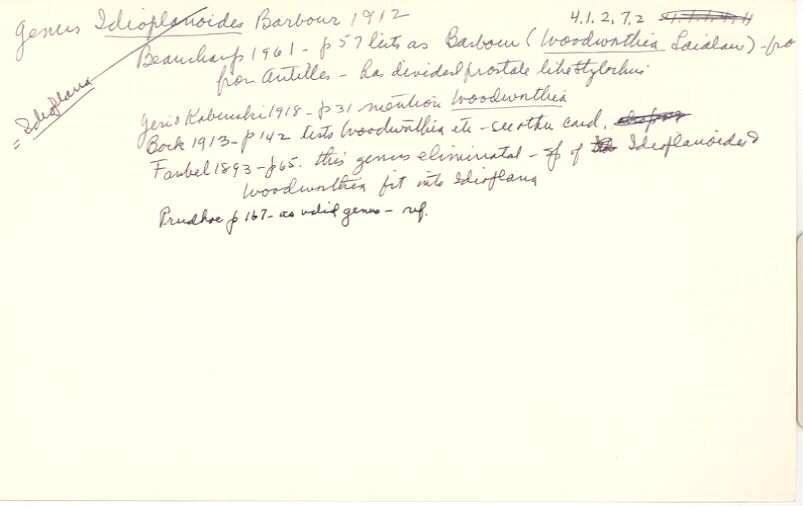 Genus Idioplanoides Barbour 1912
4.1.2.7.2
= Idioplana
Beauchamp 1961 - p57 lists as Barbour (Woodworthia Laidlaw) - fro
from Antilles - has divided prostate like Stylochus
1918 - p31 mention Woodworthia
Bock 1913 - p142 lists Woodworthia etc - see other card.
Faubel 1893 - p65. this genus eliminated - sp of Idioplanoides &
Woodworthia fit into Idioplana
Prudhoe p 167 - as valid genus - ref.